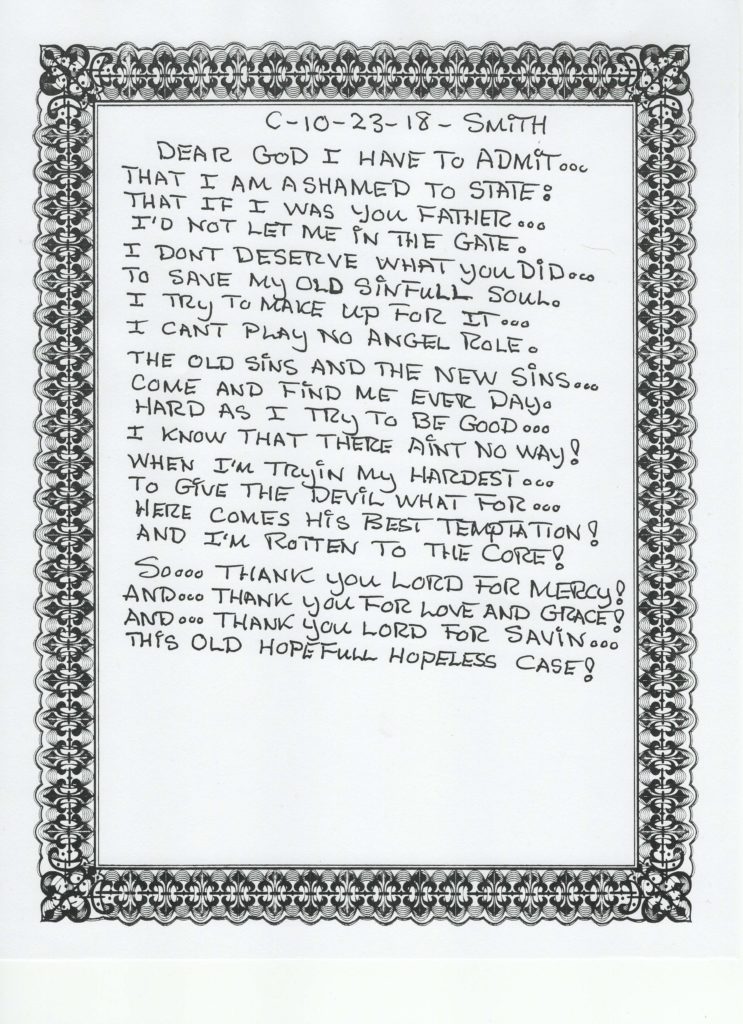 C-10-23-18-SMITH
DEAR GOD I HAVE TO ADMIT...
THAT I AM ASHAMED TO STATE:
THAT IF I WAS YOU FATHER...
I'D NOT LET ME IN THE GATE.
I DONT DESERVE WHAT YOU DID...
TO SAVE MY OLD SINFULL SOUL.
I TRY TO MAKE UP FOR IT...
I CANT PLAY NO ANGEL ROLE.
THE OLD SINS AND THE NEW SINS...
COME AND FIND ME EVER DAY.
HARD AS I TRY TO BE GOOD...
I KNOW THAT THERE AINT NO WAY!
WHEN I'M TRYIN MY HARDEST...
TO GIVE THE DEVIL WHAT FOR...
HERE COMES HIS BEST TEMPTATION!
AND I'M ROTTEN TO THE CORE!
SO... THANK YOU LORD FOR MERCY!
AND... THANK YOU FOR LOVE AND GRACE!
AND... THANK YOU LORD FOR SAVIN...
THIS OLD HOPEFULL HOPELESS CASE!